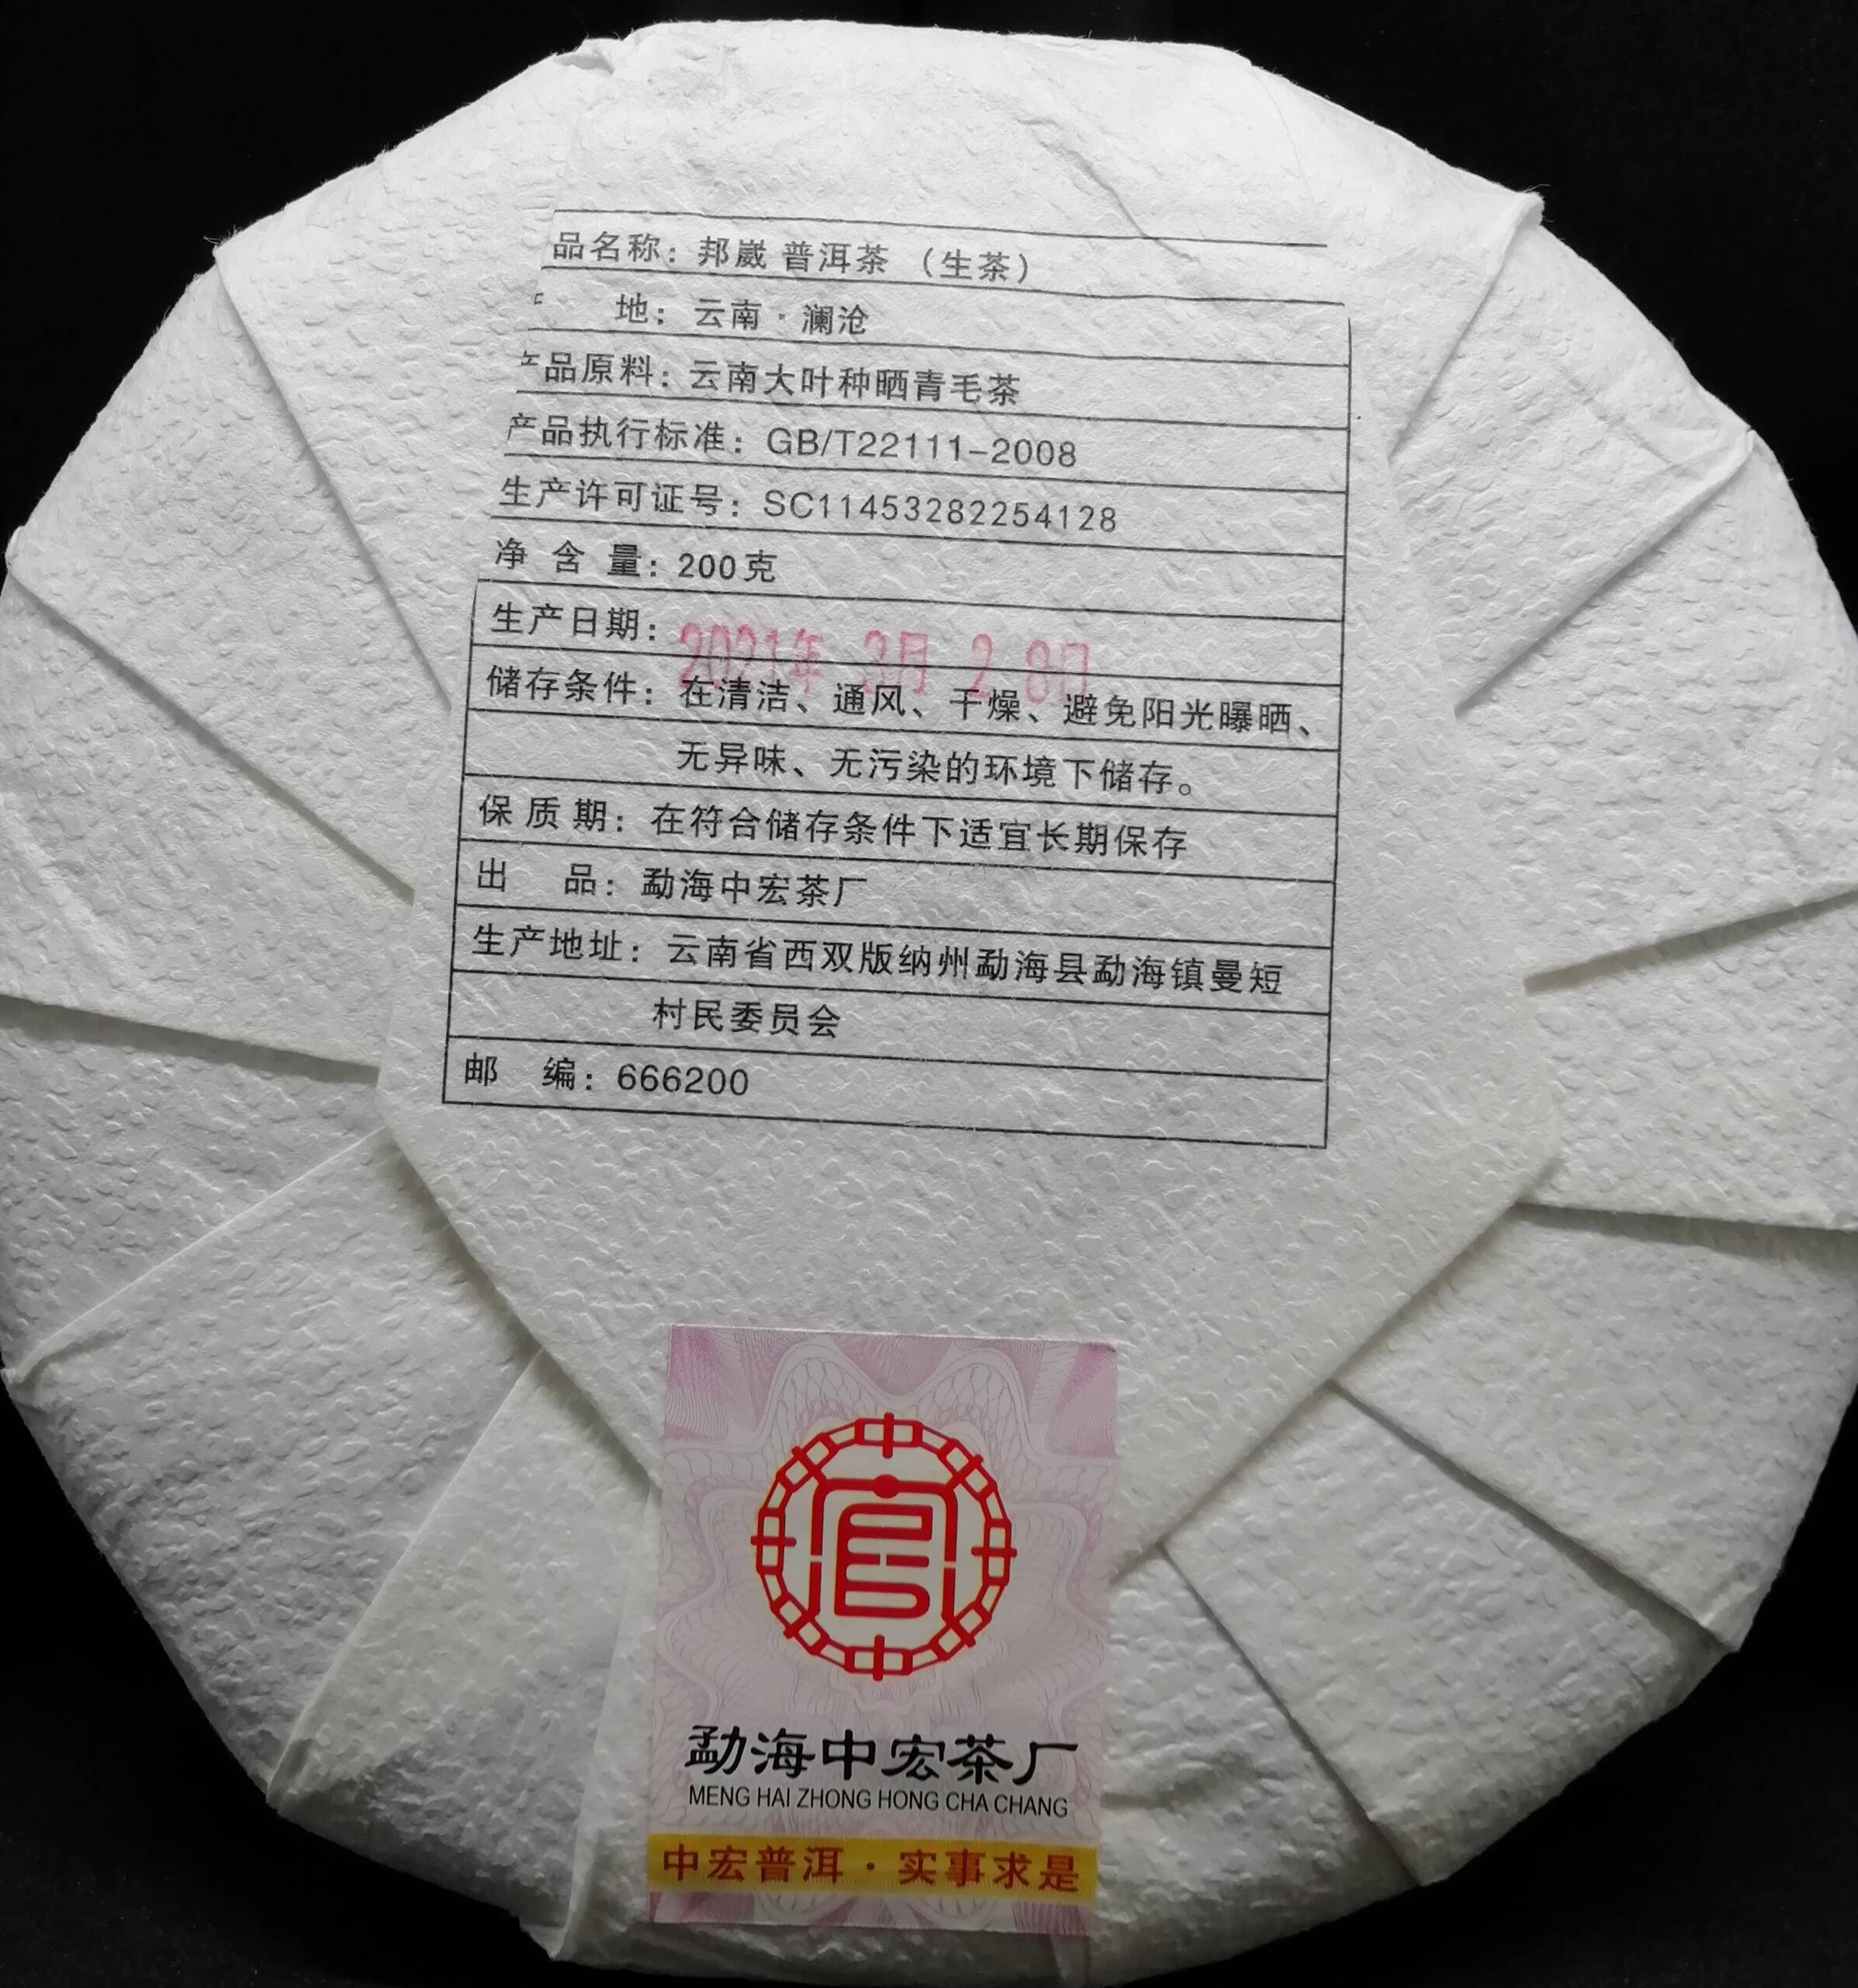 品名称：邦崴 普洱茶 （生茶）
地：云南·澜沧
产品原料：云南大叶种晒青毛茶
产品执行标准：GB/T22111-2008
生产许可证号：SC11453282254128
净 含 量：200克
生产日期：2021年 3月 28日
储存条件：在清洁、通风、干燥、避免阳光曝晒、
无异味、无污染的环境下储存。
保 质 期：在符合储存条件下适宜长期保存
出 品：勐海中宏茶厂
生产地址：云南省西双版纳州勐海县勐海镇曼短
村民委员会
邮 编：666200
勐海中宏茶厂
MENG HAI ZHONG HONG CHA CHANG
中宏普洱·实事求是